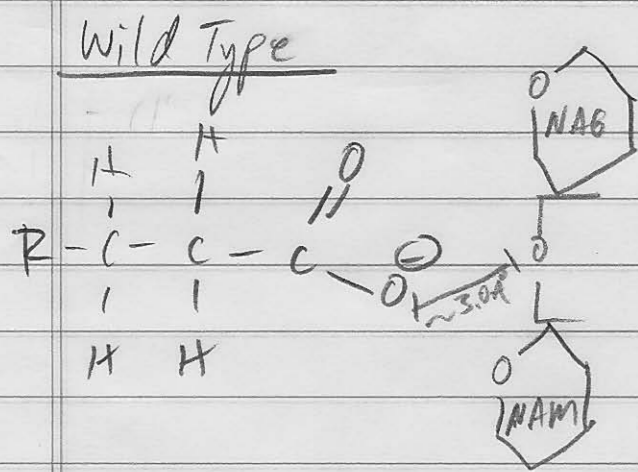 Wild Type
H H O
R - C - C - C O ⊖
H H
~3.0A°
O NAG
O
O NAM